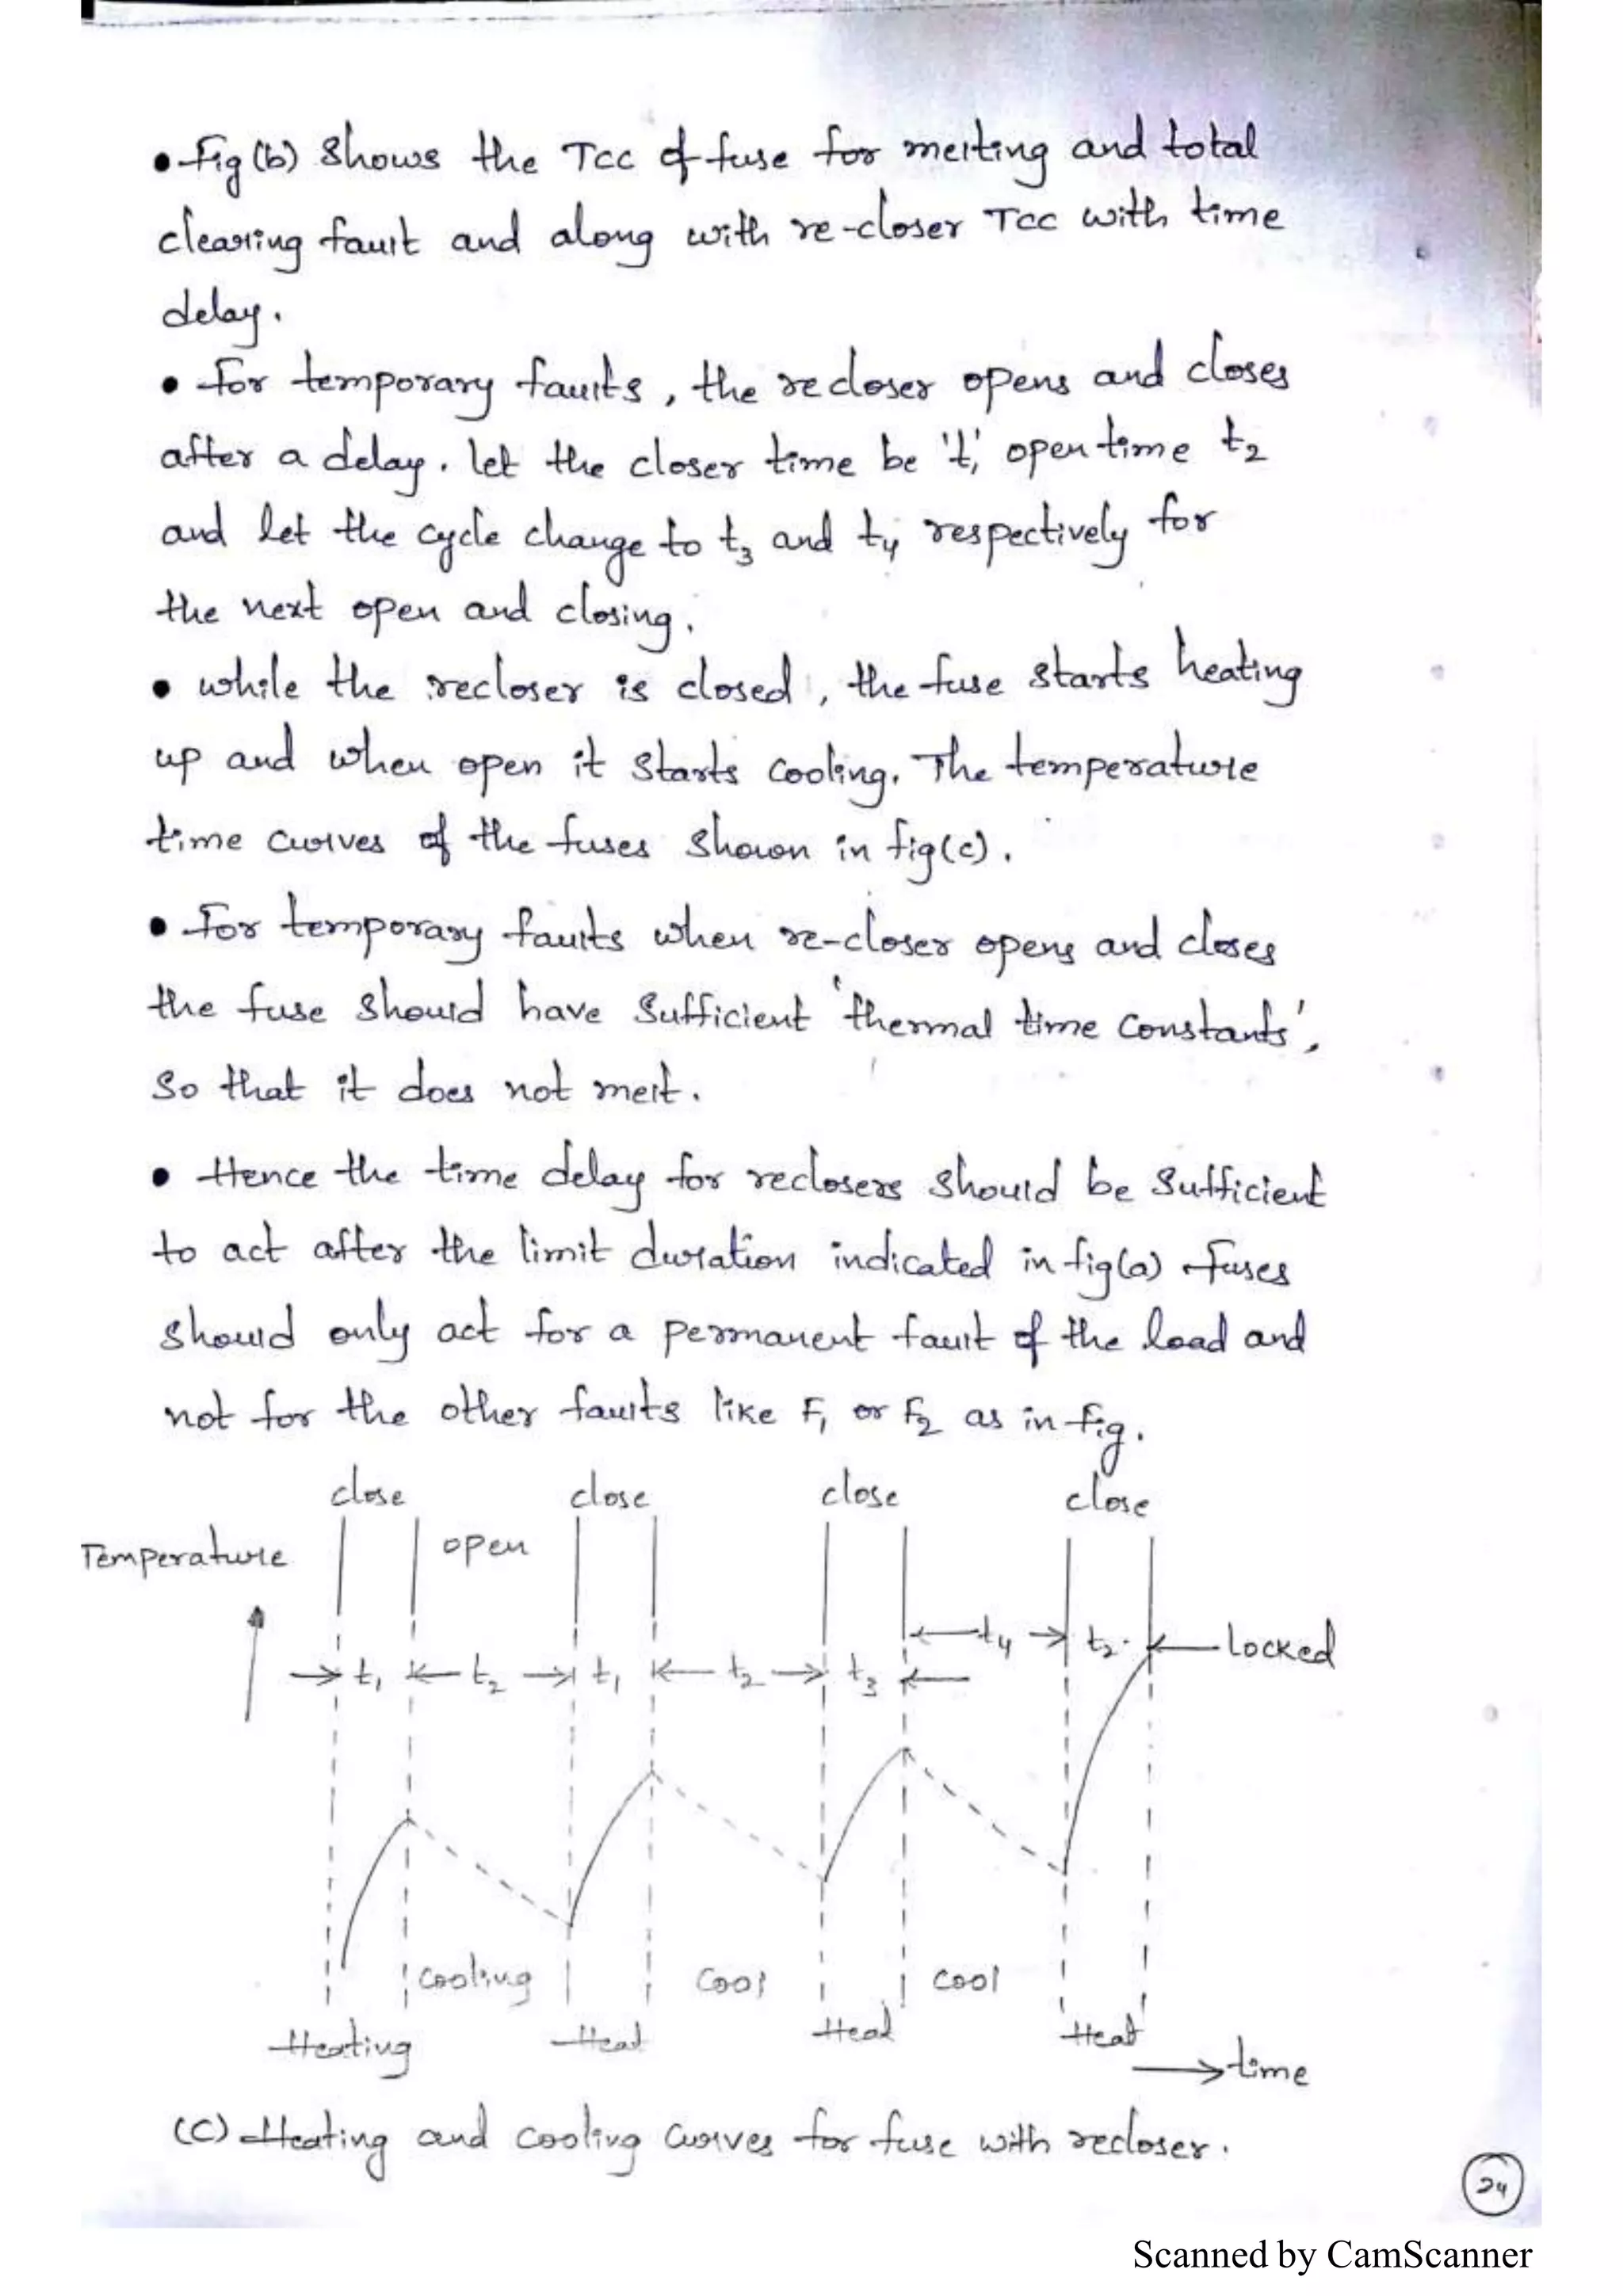 • Fig (b) shows the TCC of fuse for melting and total
clearing fault and along with re-closer TCC with time
delay.
• For temporary faults, the recloser opens and closes
after a delay. let the closer time be 't1' open time t2
and let the cycle change to t3 and t4 respectively for
the next open and closing.
• while the recloser is closed, the fuse starts heating
up and when open it starts cooling. The temperature
time curves of the fuses shown in fig(c).
• For temporary faults when re-closer opens and closes
the fuse should have sufficient 'thermal time constants',
so that it does not melt.
• Hence the time delay for reclosers should be sufficient
to act after the limit duration indicated in fig(a) fuses
should only act for a permanent fault of the load and
not for the other faults like F1 or F2 as in fig.
close close close close
Temperature open
t4 t2 Locked
t1 t2 t1 t2 t3
cooling cool cool
Heating Heat Heat Heat
time
(C) Heating and cooling curves for fuse with recloser.
24
Scanned by CamScanner